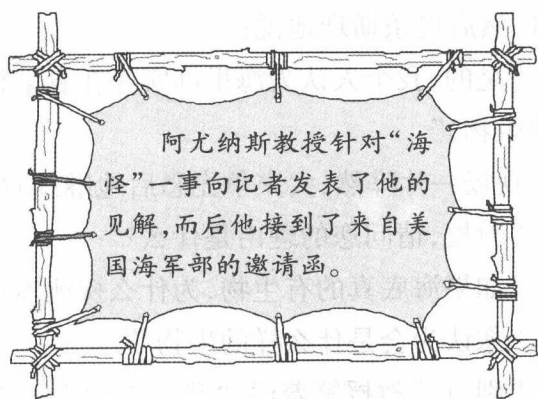 阿尤纳斯教授针对“海
怪”一事向记者发表了他的
见解,而后他接到了来自美
国海军部的邀请函。